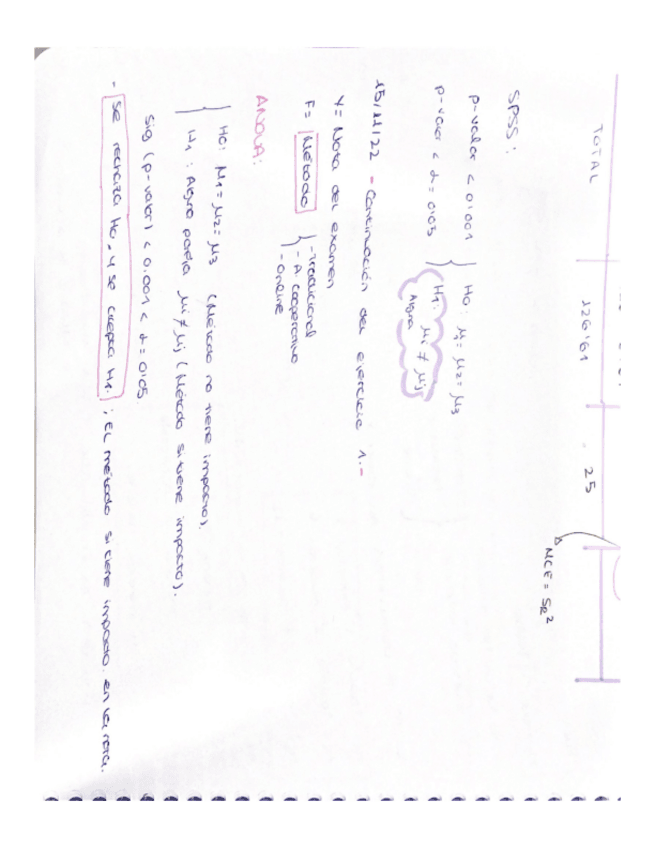 TOTAL 126'61 25
MCE = SR²
SPSS:
p-valor < 0'001
p-valor < α = 0'05
H0: μ1 = μ2 = μ3
H1: μi ≠ μj
Alguna
15/11/22 - Continuación del ejercicio 1.-
Y = Nota del examen
F = Método
- Tradicional
- A. cooperativo
- Online
ANOVA:
H0: μ1 = μ2 = μ3 (Método no tiene impacto).
H1: Alguna pareja μi ≠ μj (Método si tiene impacto).
Sig (p-valor) < 0.001 < α = 0'05.
- Se rechaza H0, y se acepta H1. ; El método si tiene impacto en la nota.